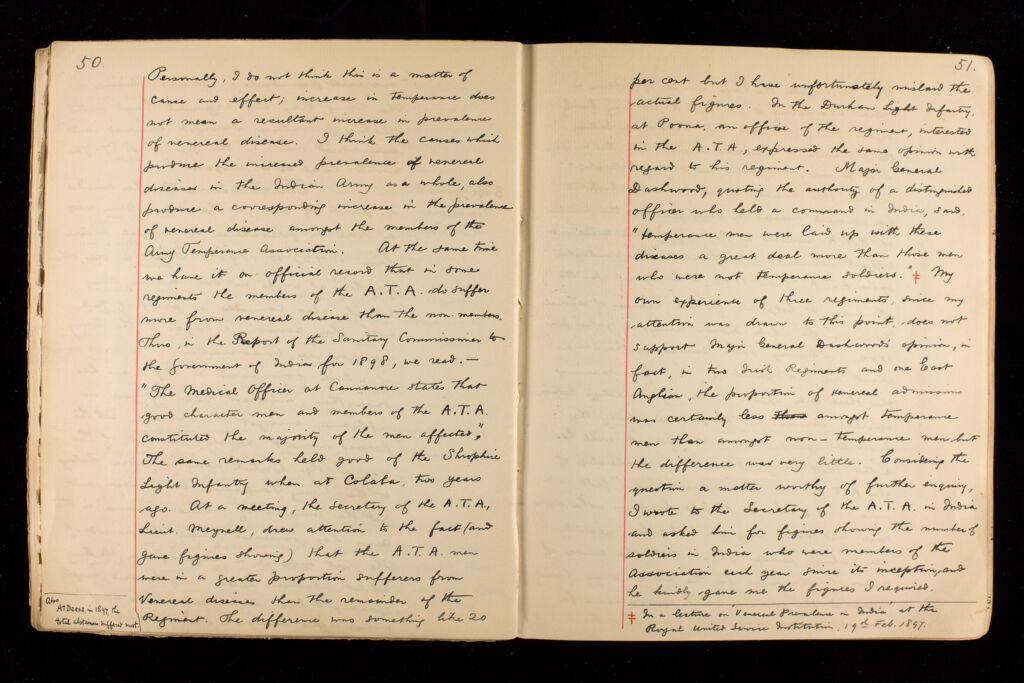 50.
Personally, I do not think this is a matter of
cause and effect; increase in temperance does
not mean a resultant increase in prevalence
of venereal disease. I think the causes which
produce the increased prevalence of venereal
diseases in the Indian Army as a whole, also
produce a corresponding increase in the prevalence
of venereal disease amongst the members of the
Army Temperance Association. At the same time
we have it on official record that in some
regiments the members of the A.T.A. do suffer
more from venereal disease than the non-members.
Thus, in the Report of the Sanitary Commissioner to
the Government of India for 1898, we read. —
"The Medical Officer at Cannanore states that
good character men and members of the A.T.A.
constituted the majority of the men affected."
The same remarks held good of the Shropshire
Light Infantry when at Colaba, two years
ago. At a meeting, the Secretary of the A.T.A.,
Lieut. Meynell, drew attention to the fact (and
gave figures showing) that the A.T.A. men
were in a greater proportion sufferers from
Venereal diseases than the remainder of the
Regiment. The difference was something like 20
Also
At Deesa, in 1897, the
total abstainers suffered most
51.
per cent but I have unfortunately mislaid the
actual figures. In the Durham Light Infantry,
at Poona, an officer of the regiment, interested
in the A.T.A, expressed the same opinion with
regard to his regiment. Major General
Dashwood, quoting the authority of a distinguished
officer who held a command in India, said,
"temperance men were laid up with these
diseases a great deal more than those men
who were not temperance soldiers." ‡ My
own experience of three regiments, since my
attention was drawn to this point, does not
support Major General Dashwood's opinion, in
fact, in two Irish Regiments and one East
Anglian, the proportion of venereal admissions
was certainly less than amongst temperance
men than amongst non-temperance men, but
the difference was very little. Considering the
question a matter worthy of further enquiry,
I wrote to the Secretary of the A.T.A. in India
and asked him for figures showing the number of
soldiers in India who were members of the
Association each year since its inception, and
he kindly gave me the figures I required.
‡ In a lecture on Venereal Prevalence in India at the
Royal United Service Institution, 19th Feb. 1897.